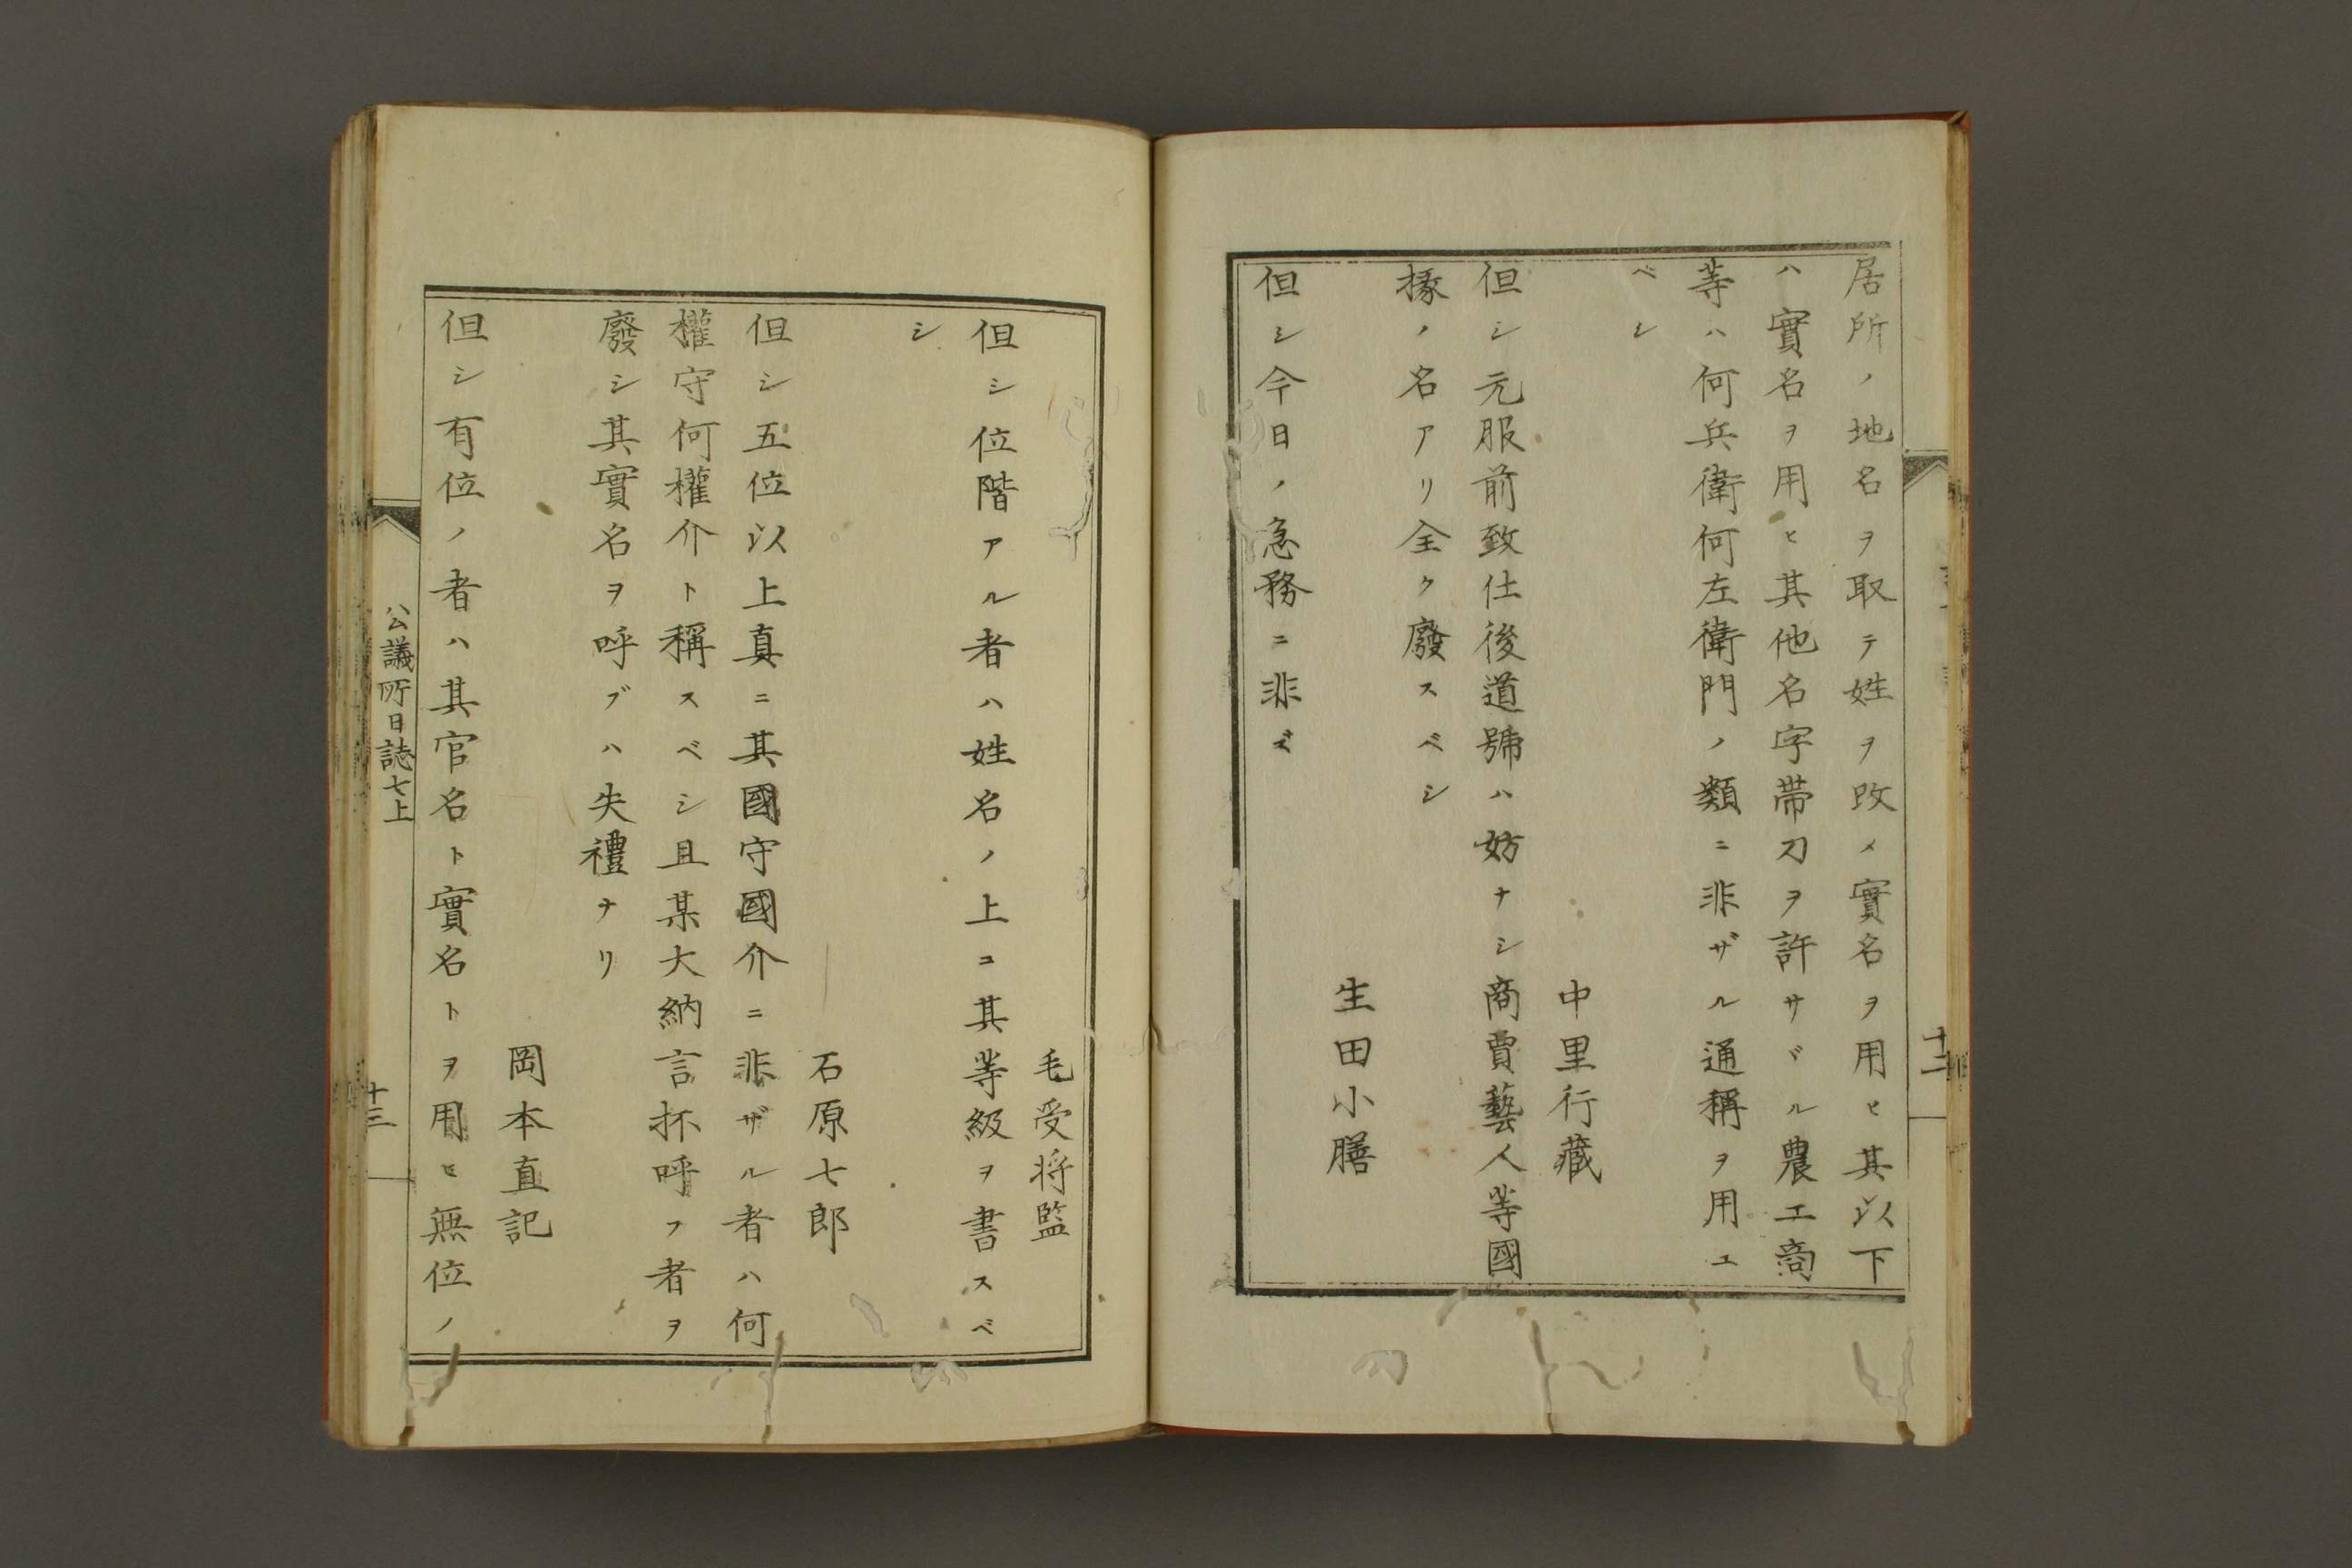 居所ノ地名ヲ取テ姓ヲ改メ實名ヲ用ヒ其以下
ハ實名ヲ用ヒ其他名字帶刀ヲ許サヾル農工商
等ハ何兵衛何左衛門ノ類ニ非ザル通稱ヲ用ユ
ベシ
中里行藏
但シ元服前致仕後道號ハ妨ナシ商賈藝人等國
掾ノ名アリ全ク廢スベシ
生田小膳
但シ今日ノ急務ニ非ズ
十二
毛受将監
但シ位階アル者ハ姓名ノ上コ其等級ヲ書スベ
シ
石原七郎
但シ五位以上真ニ其國守國介ニ非ザル者ハ何
權守何權介ト稱スベシ且某大納言抔呼フ者ヲ
廢シ其實名ヲ呼ブハ失禮ナリ
岡本直記
但シ有位ノ者ハ其官名ト實名トヲ用ヒ無位ノ
公議所日誌七上
十三